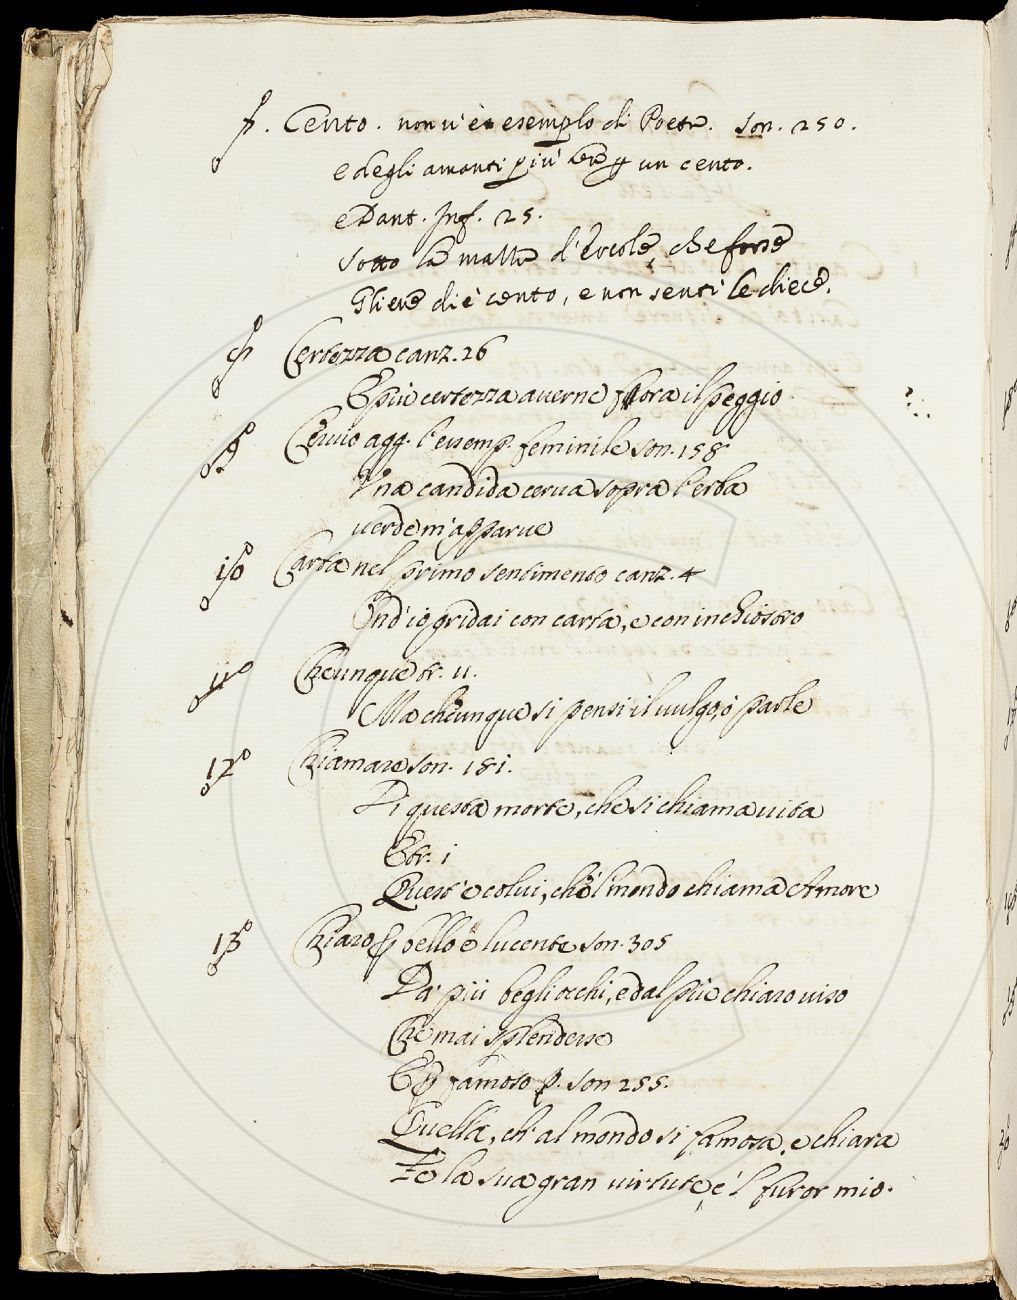 7. Cento. non v'è esempio di Poeta. son. 250.
e degli amanti più ben p un cento.
e Dant. Inf. 25.
sotto la mazza d'Ercole, che forse
Gliene diè cento, e non sentì le diece.
8 Certezza canz. 26
E più certezza averne fora il peggio
9° Cervio agg. l'essemp. feminile son. 158
Una candida cerva sopra l'erba
verde m'apparve
10 Carta nel primo sentimento canz. 4
Ond'io gridai con carta, e con inchiostro
11° Cheunque tr. 11.
Ma cheunque si pensi il vulgo, o parle
12° Chiamare son. 181.
Di questa morte, che si chiama vita
E tr. i
Quest'è colui, che'l mondo chiama Amore
13° Chiaro p bello e lucente son. 305
Da' più begli occhi, e dal più chiaro viso
Che mai splendesse
E p famoso p. son 255.
Quella, ch'al mondo si famosa, e chiara
Fe la sua gran virtute, e'l furor mio.